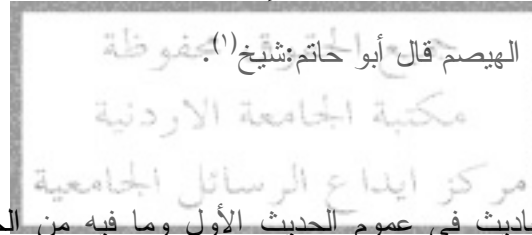 الهيصم قال أبو حاتم:شيخ(١).
جميع الحقوق محفوظة
مكتبة الجامعة الاردنية
مركز ايداع الرسائل الجامعية
في عموم الحديث الأول وما فيه من